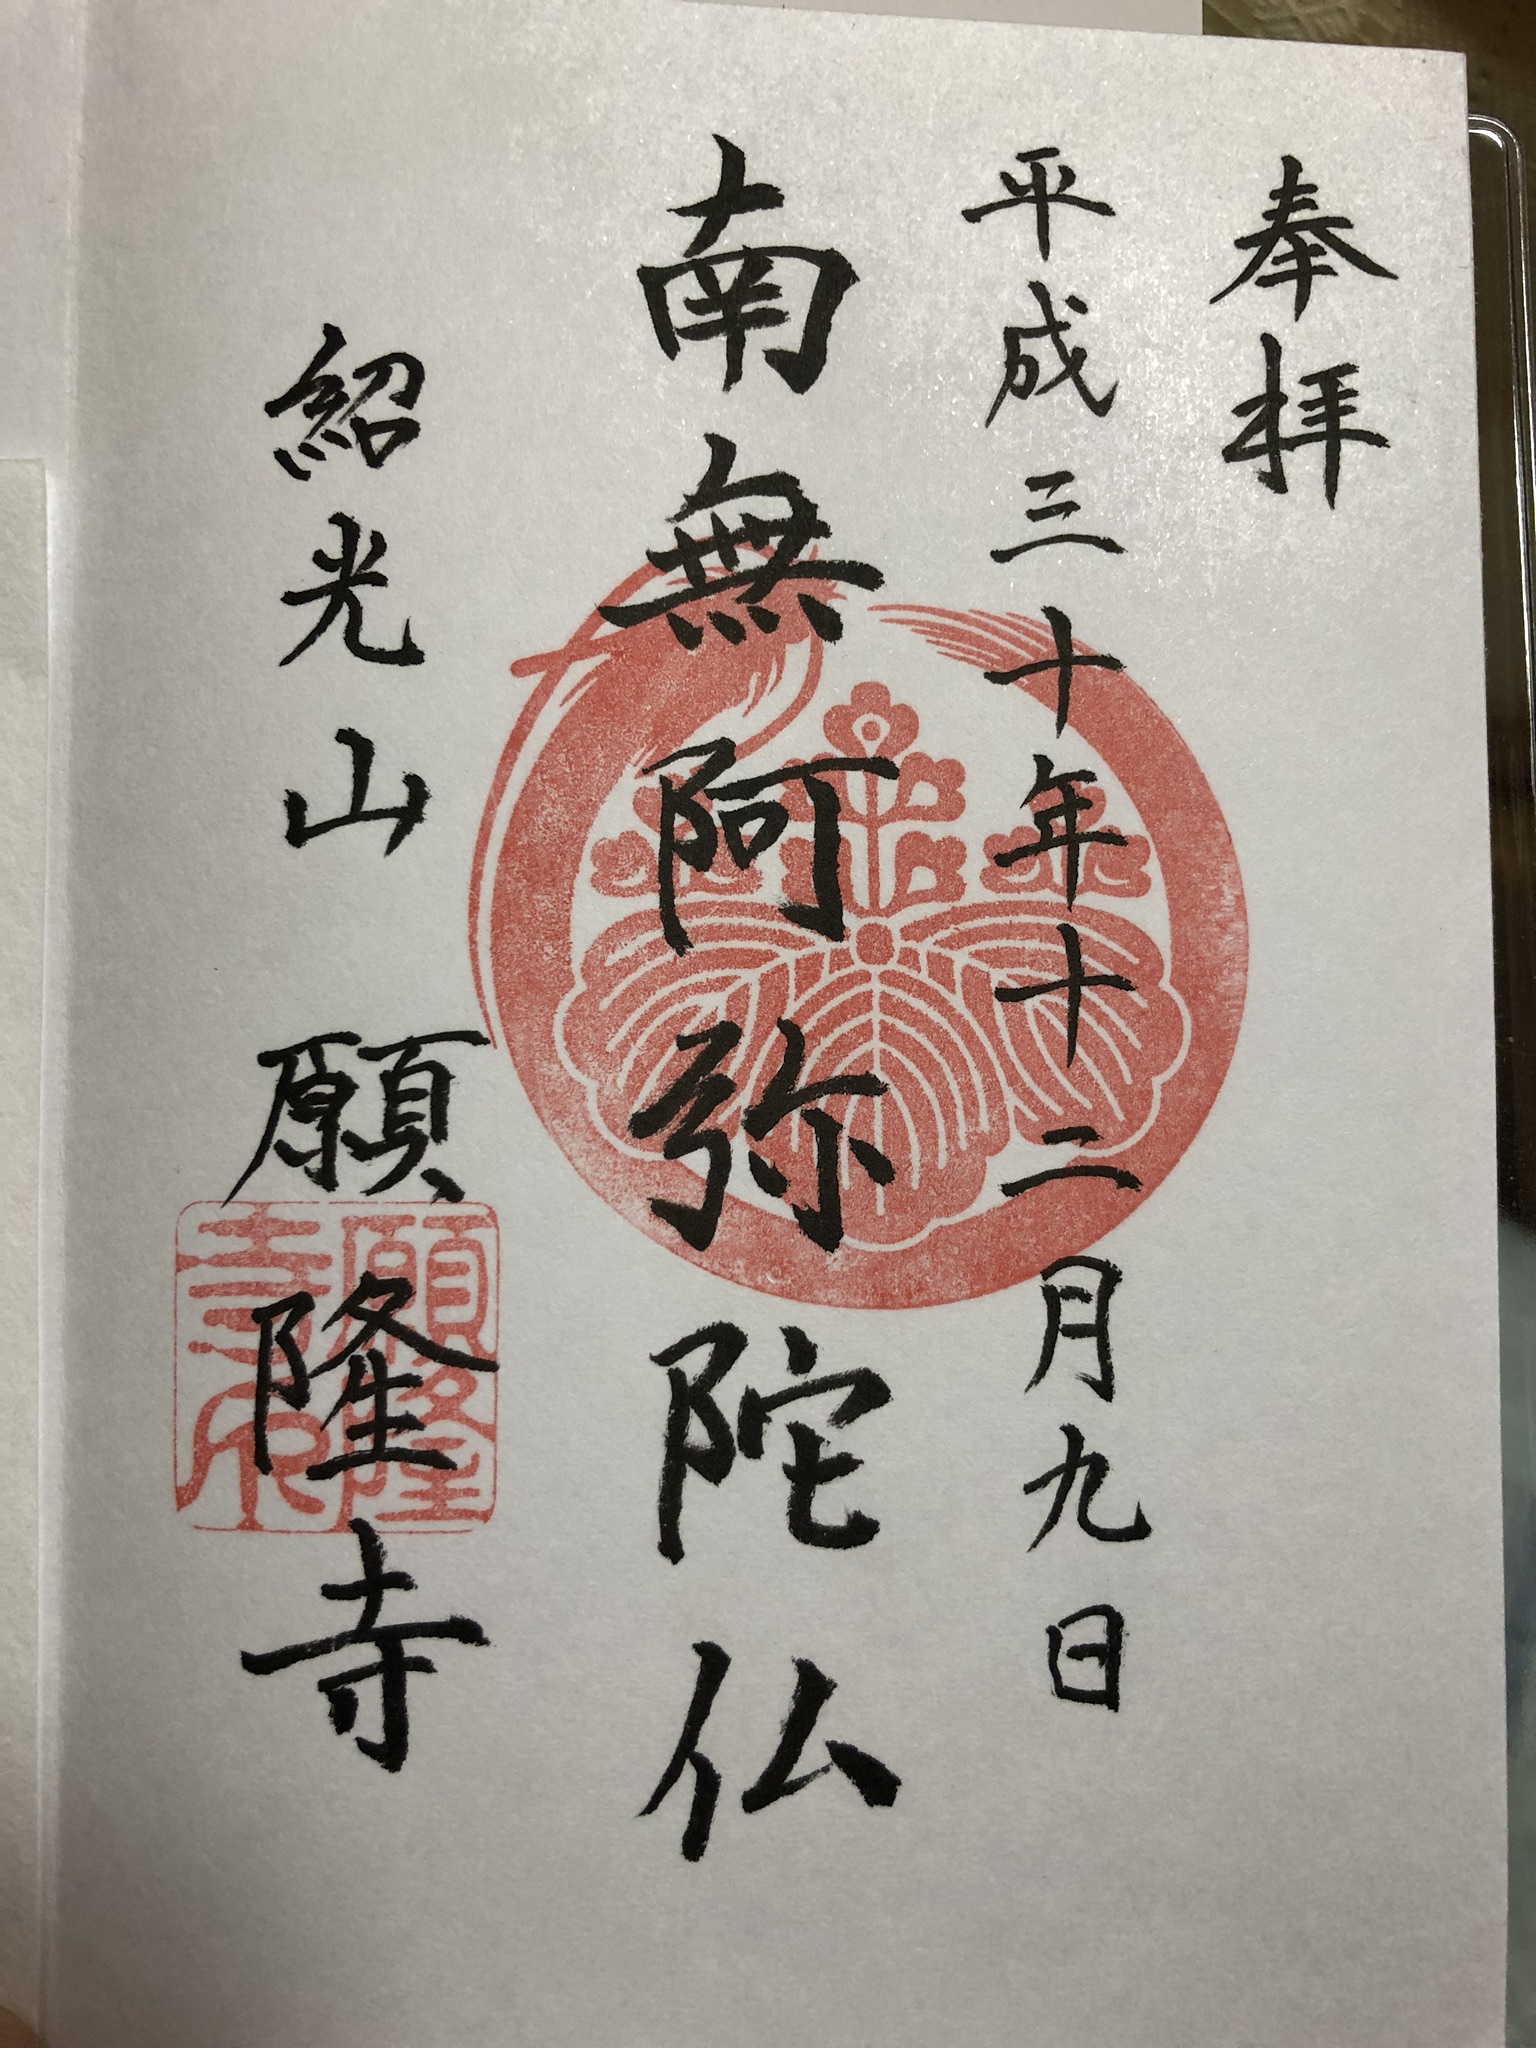 奉拝
平成三十年十二月九日
南無阿弥陀仏
紹光山 願隆寺
願隆
寺印